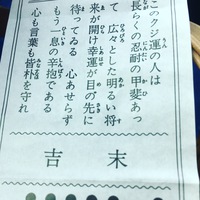 このクジ運の人は
長らくの忍耐の甲斐あっ
て 広々とした明るい将
来が開け幸運が目の先に
待ってゐる 心あせらず
もう一息の辛抱である
心も言葉も皆朴を守れ
末吉